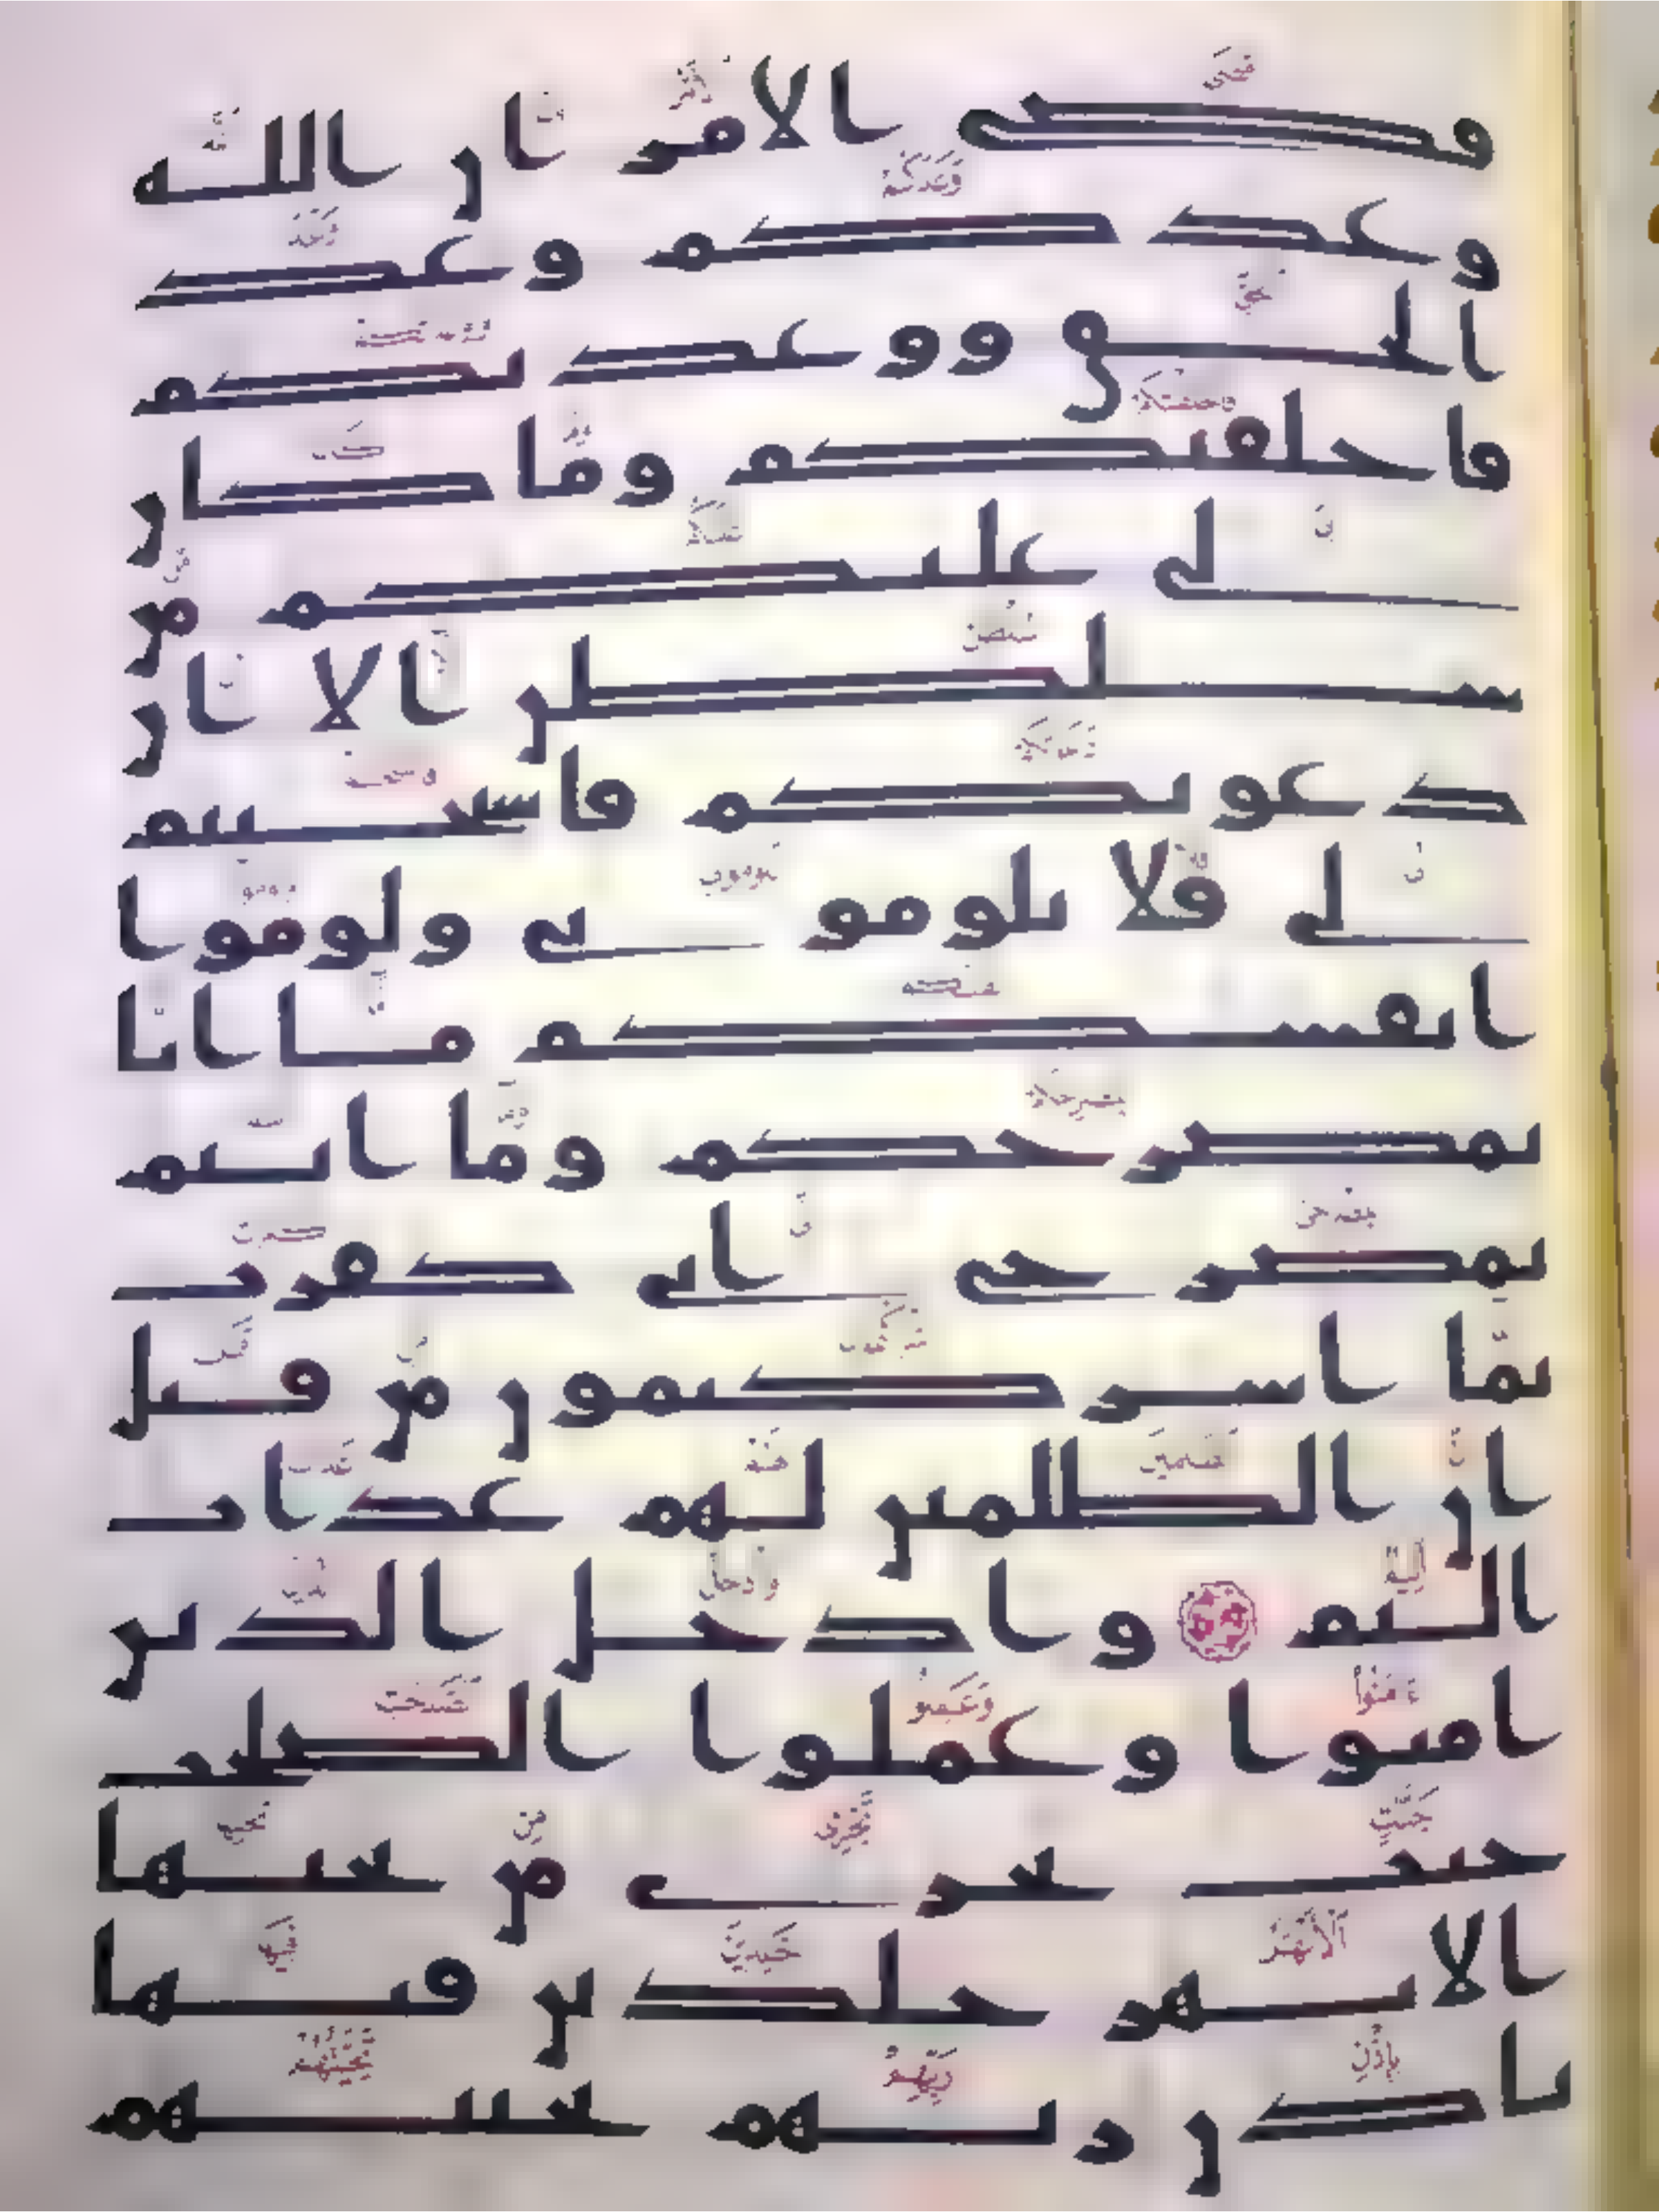 قضى الامر ان الله
وعدكم وعد
الحق ووعدتكم
فاخلفتكم وما كان
لى عليكم من
سلطن الا ان
دعوتكم فاستجبتم
لى فلا تلومونى ولوموا
انفسكم ما انا
بمصرخكم وما انتم
بمصرخى انى كفرت
بما اشركتمون من قبل
ان الظلمين لهم عذاب
اليم وادخل الذين
امنوا وعملوا الصلحت
جنت تجرى من تحتها
الانهر خلدين فيها
باذن ربهم تحيتهم